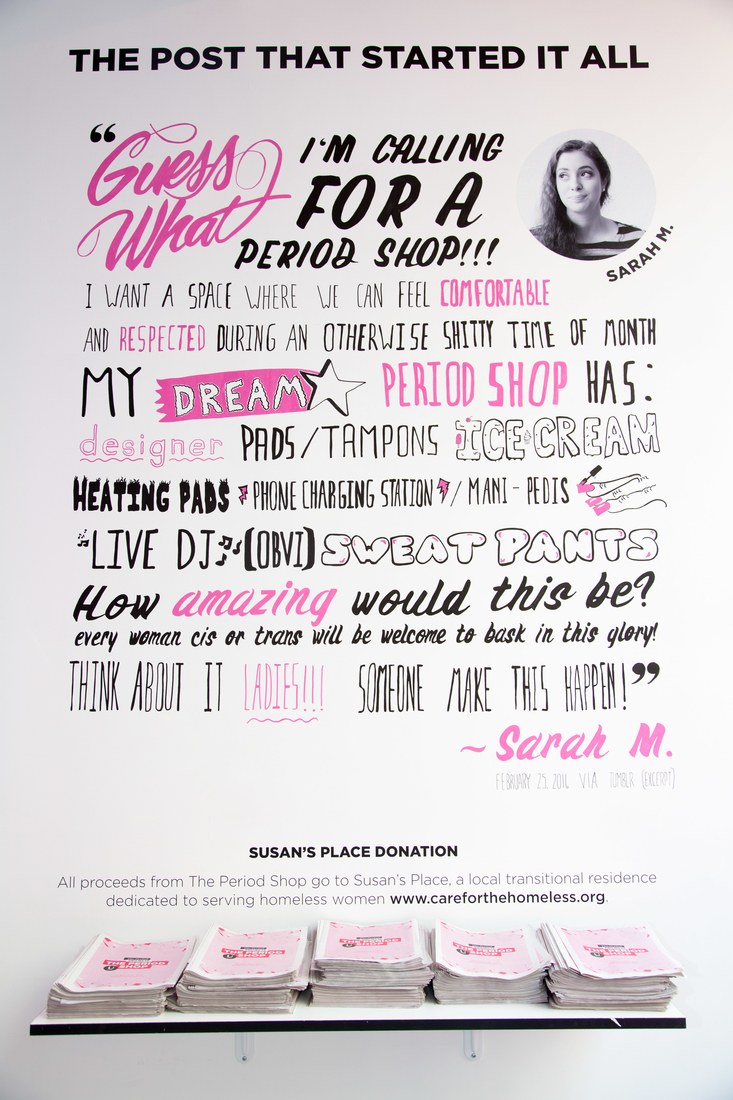 THE POST THAT STARTED IT ALL
“Guess What I'M CALLING
FOR A
PERIOD SHOP!!!
SARAH M.
I WANT A SPACE WHERE WE CAN FEEL COMFORTABLE
AND RESPECTED DURING AN OTHERWISE SHITTY TIME OF MONTH
MY DREAM PERIOD SHOP HAS:
designer PADS/TAMPONS ICE-CREAM
HEATING PADS PHONE CHARGING STATION / MANI-PEDIS
LIVE DJ (OBVI) SWEAT PANTS
How amazing would this be?
every woman cis or trans will be welcome to bask in this glory!
THINK ABOUT IT LADIES!!! SOMEONE MAKE THIS HAPPEN!”
~Sarah M.
FEBRUARY 25, 2016 VIA TUMBLR (EXCERPT)
SUSAN'S PLACE DONATION
All proceeds from The Period Shop go to Susan's Place, a local transitional residence
dedicated to serving homeless women www.careforthehomeless.org.
THE PERIOD SHOP
THE PERIOD SHOP
THE PERIOD SHOP
THE PERIOD SHOP
THE PERIOD SHOP